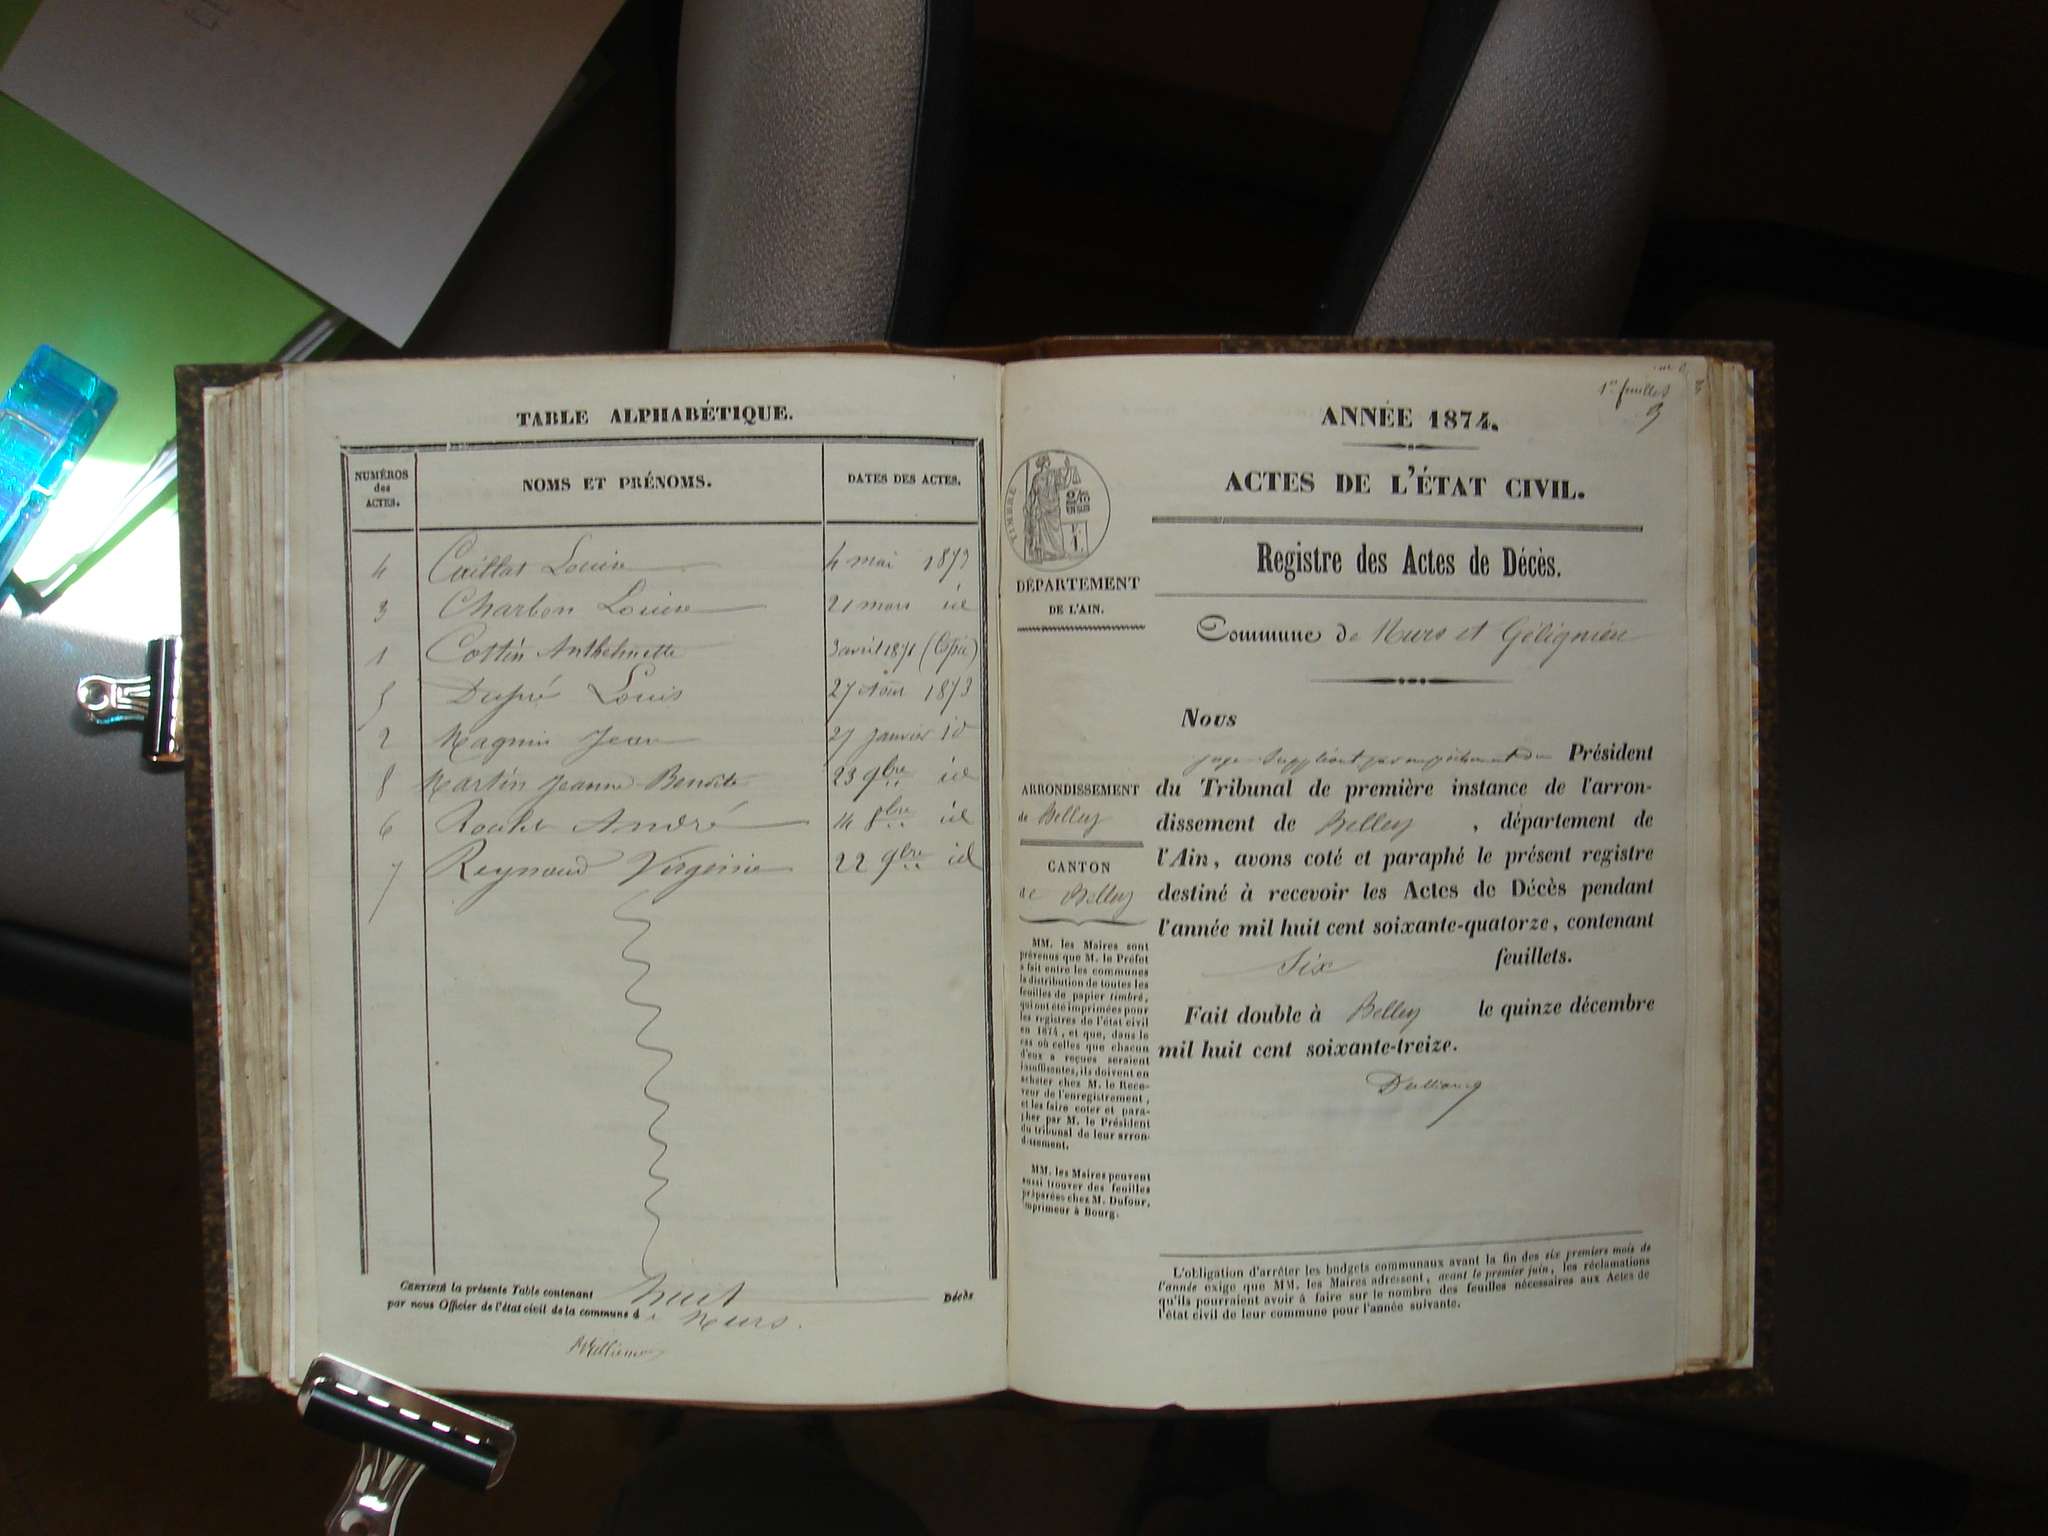 TABLE ALPHABÉTIQUE.
NUMÉROS des ACTES.
NOMS ET PRÉNOMS.
DATES DES ACTES.
4 Cuillat Louise 4 mai 1873
3 Charbon Louise 21 mars id
1 Cottin Anthelmette 3 avril 1871 (Copie)
5 Dupré Louis 27 Août 1873
2 Magnin Jean 27 janvier id
8 Martin Jeanne Benoîte 23 9bre id
6 André 14 8bre id
7 Reynaud Virginie 22 9bre id
CERTIFIÉ la présente Table contenant huit Décès
par nous Officier de l'état civil de la commune d Murs.
1er feuillet
ANNÉE 1874.
ACTES DE L'ÉTAT CIVIL.
TIMBRE
Registre des Actes de Décès.
DÉPARTEMENT
DE L'AIN.
Commune de Murs et Gélignieu
ARRONDISSEMENT
de Belley
CANTON
de Belley
MM. les Maires sont
prévenus que M. le Préfet
a fait entre les communes
la distribution de toutes les
feuilles de papier timbré,
qui ont été imprimées pour
les registres de l'état civil
en 1874, et que, dans le
cas où celles que chacun
d'eux a reçues seraient
insuffisantes, ils doivent en
acheter chez M. le Rece-
veur de l'enregistrement,
et les faire coter et para-
pher par M. le Président
du tribunal de leur arron-
dissement.
MM. les Maires peuvent
aussi trouver des feuilles
préparées chez M. Dufour,
imprimeur à Bourg.
Nous
juge suppléant par empêchement du Président
du Tribunal de première instance de l'arron-
dissement de Belley , département de
l'Ain, avons coté et paraphé le présent registre
destiné à recevoir les Actes de Décès pendant
l'année mil huit cent soixante-quatorze, contenant
Six feuillets.
Fait double à Belley le quinze décembre
mil huit cent soixante-treize.
L'obligation d'arrêter les budgets communaux avant la fin des six premiers mois de
l'année exige que MM. les Maires adressent, avant le premier juin, les réclamations
qu'ils pourraient avoir à faire sur le nombre des feuilles nécessaires aux Actes de
l'état civil de leur commune pour l'année suivante.